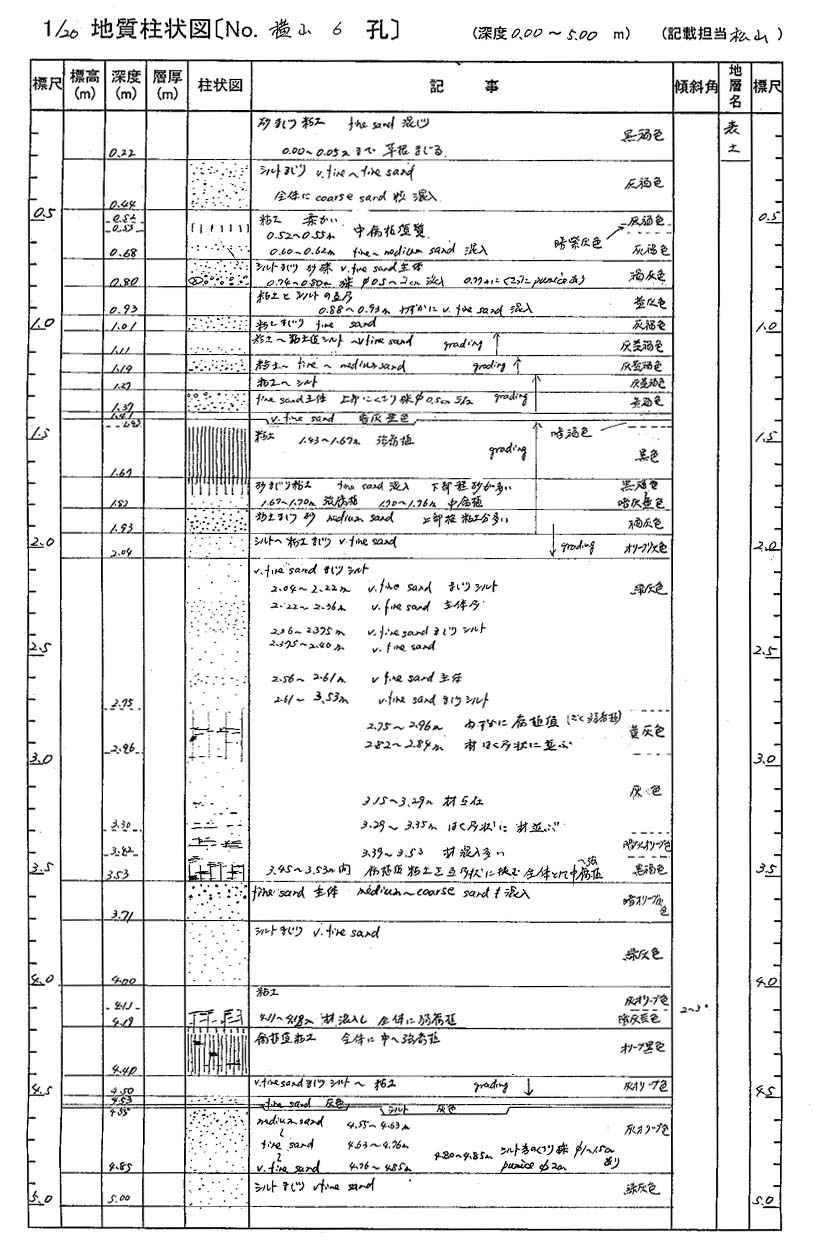 1/20 地質柱状図〔No. 横山 6 孔〕 (深度 0.00 ~ 5.00 m) (記載担当 松山)
標尺 標高(m) 深度(m) 層厚(m) 柱状図 記事 傾斜角 地層名 標尺
砂まじり粘土 fine sand 混じり 黒褐色 表土
0.00~0.05mまで 草根まじる
0.22
シルトまじり v.fine~fine sand 灰褐色
全体に coarse sand 粒 混入
0.44
0.5 0.5
0.52 粘土 灰褐色
0.55 0.52~0.55m 中腐植質 暗紫灰色
0.68 0.60~0.62m fine~medium sand 混入 灰褐色
シルトまじり 砂礫 v.fine sand 主体 褐灰色
0.80 0.74~0.80m 礫 φ0.5~2cm 混入
粘土とシルトの互層 黄灰色
0.93 0.88~0.93m わずかに v.fine sand 混入
1.0 1.01 粘土まじり fine sand 灰褐色 1.0
粘土~粘土質シルト~v.fine sand grading 灰黄褐色
1.11
1.19 粘土~fine~medium sand grading 灰黄褐色
1.27 粘土~シルト 灰黄褐色
fine sand 主体 grading
1.37
1.41 v.fine sand 暗灰黄色
1.43 暗褐色
1.5 粘土 1.43~1.67m 強腐植 grading 黒色 1.5
1.67
砂まじり粘土 fine sand 混入 下部程 砂が多い 黒褐色
1.82 1.67~1.70m 強腐植 1.70~1.76m 中腐植 暗灰黄色
粘土まじり 砂 medium sand 上部程 粘土分多い 褐灰色
1.93
2.0 シルト~粘土まじり v.fine sand grading オリーブ灰色 2.0
2.04
v.fine sand まじり シルト 緑灰色
2.04~2.22m v.fine sand まじりシルト
2.22~2.36m v.fine sand 主体層
2.36~2.375m v.fine sand まじりシルト
2.5 2.375~2.40m v.fine sand 2.5
2.56~2.61m v.fine sand 主体
2.61~3.53m v.fine sand まじりシルト
2.75
2.75~2.96m わずかに 腐植質 (ごく弱腐植) 黄灰色
2.96 2.82~2.84m 材 はく層状に並ぶ
3.0 3.0
灰色
3.15~3.29m 材点在
3.30 3.29~3.35m はく層状に 材並ぶ
3.42 3.39~3.53 材混入多い 暗灰オリーブ色
3.5 3.53 3.45~3.53m間 腐植質 粘土と互層状に挟む 全体として中~強腐植 黒褐色 3.5
fine sand 主体 medium~coarse sand も混入 暗オリーブ灰色
3.71
シルトまじり v.fine sand 緑灰色
4.0 4.00 4.0
粘土 灰オリーブ色
4.11 2~3°
4.19 4.11~4.18m 材混入し 全体に弱腐植 暗灰黄色
腐植質粘土 全体に中~強腐植 オリーブ黒色
4.40
4.5 4.50 v.fine sand まじりシルト~粘土 grading 灰オリーブ色 4.5
4.53 fine sand 灰色
4.55 シルト 灰色
medium sand 4.55~4.63m 灰オリーブ色
fine sand 4.63~4.76m
4.85 v.fine sand 4.76~4.85m 4.80~4.85m pumice φ2cm あり
5.0 5.00 シルトまじり v.fine sand 緑灰色 5.0